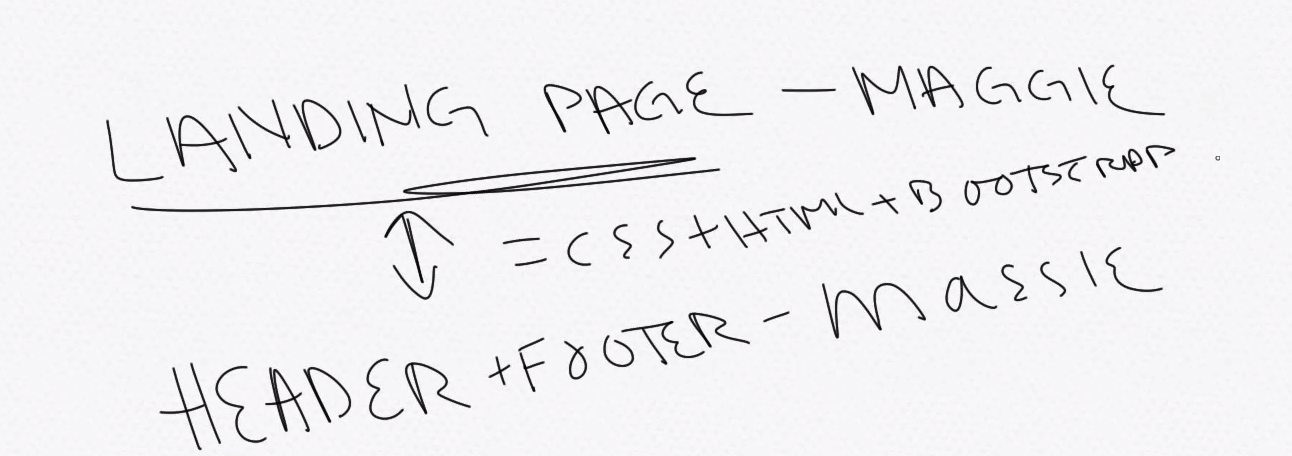 LANDING PAGE - MAGGIE
= CSS + HTML + BOOTSTRAP.
HEADER + FOOTER - MASSIE